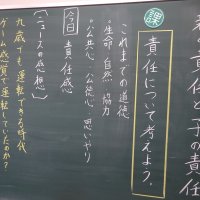 者の責任と子の責任
課
責任について考えよう。
これまでの道徳
生命 自然 協力
公共心、公徳心、思いやり
今日
責任感
〔ニュースの感想〕
九歳でも運転できる時代
ゲーム感覚で運転していたのか？